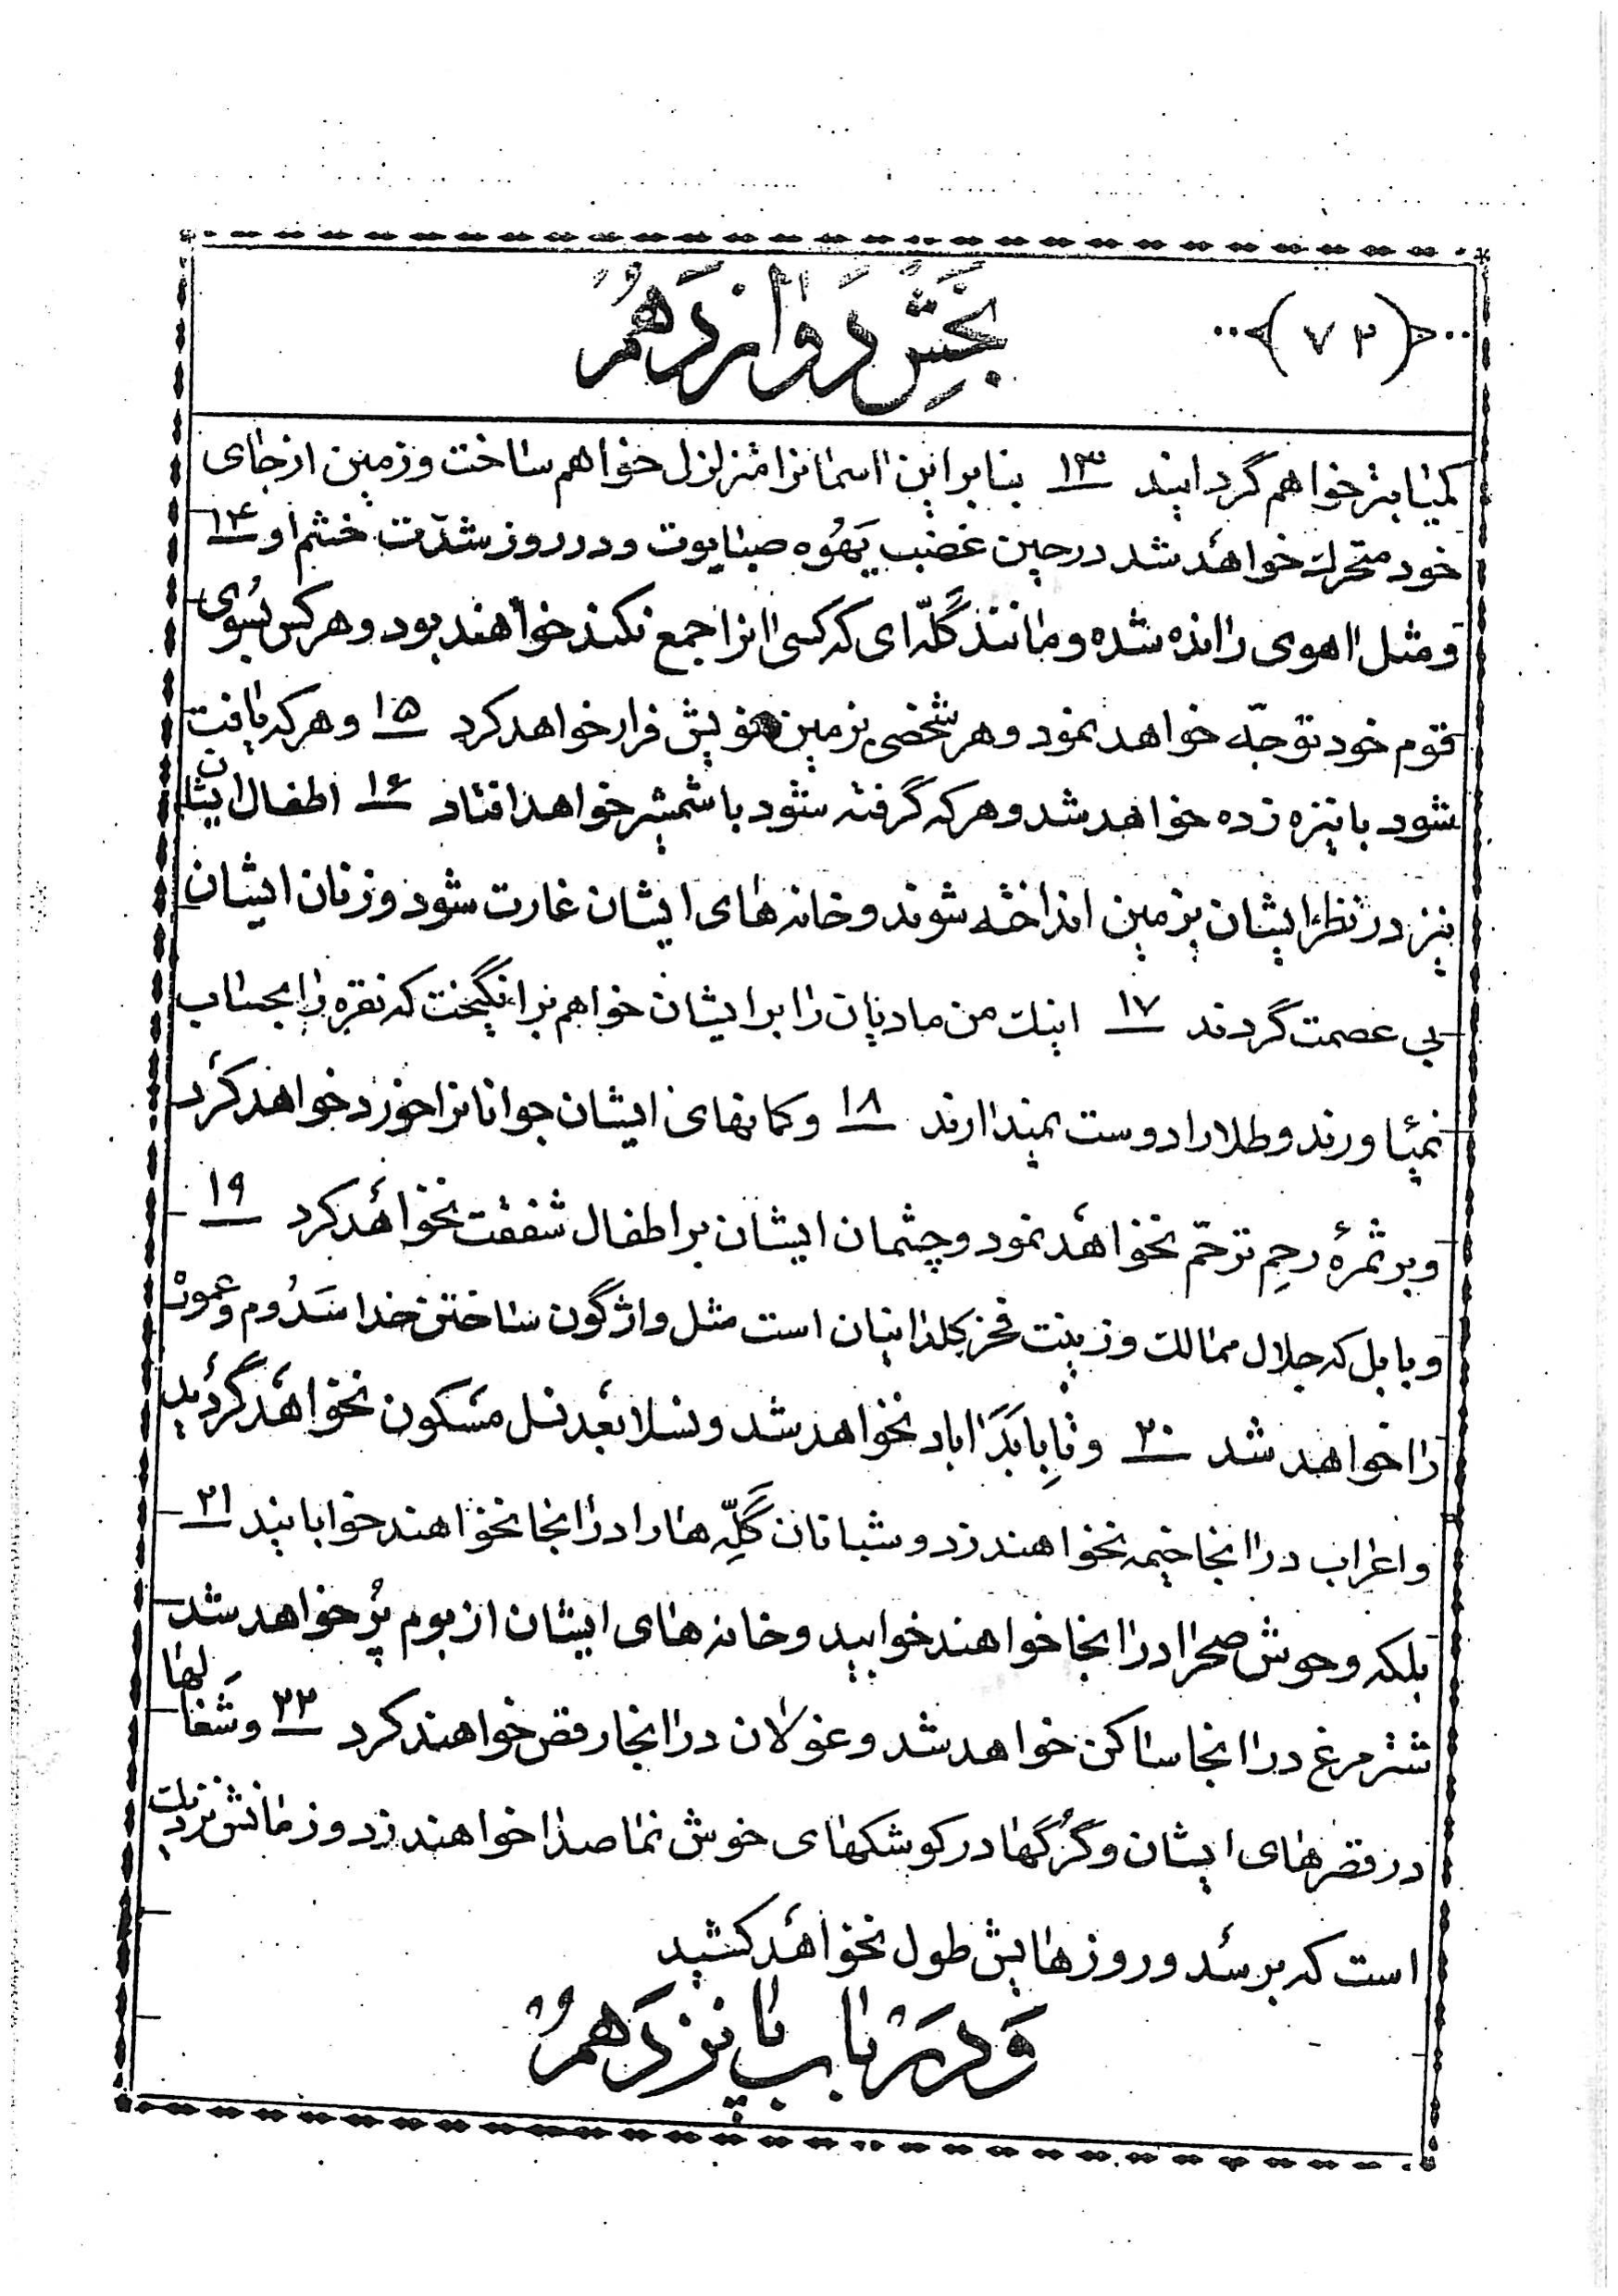 (۷۲)
بخش دوازدهم
کمیابتر خواهم گردانید ۱۳ بنابراین اسمانرا متزلزل خواهم ساخت و زمین از جای
خود متحرک خواهد شد در حین غضب یَهُوه صبایوت و در روز شدّت خشم او ۱۴
و مثل اهوی رانده شده و مانند گلّه‌ای که کسی انرا جمع نکند خواهند بود و هر کس بسُوی
قوم خود توجّه خواهد نمود و هر شخصی بزمین خویش فرار خواهد کرد ۱۵ و هر که یافت
شود با نیزه زده خواهد شد و هر که گرفته شود با شمشیر خواهد افتاد ۱۶ اطفال ایشان
نیز در نظر ایشان بزمین انداخته شوند و خانه‌های ایشان غارت شود و زنان ایشان
بی عصمت گردند ۱۷ اینک من مادیان را بر ایشان خواهم برانگیخت که نقره را بحساب
نمیاورند و طلا را دوست نمیدارند ۱۸ و کمانهای ایشان جوانانرا خورد خواهد کرد
و بر ثمرهٔ رحِم ترحّم نخواهد نمود و چشمان ایشان بر اطفال شفقت نخواهد کرد ۱۹
و بابل که جلال ممالک و زینت فخر کلدانیان است مثل واژگون ساختن خدا سَدُوم و عموره
را خواهد شد ۲۰ و تا بابَد اباد نخواهد شد و نسلا بعد نسل مسکون نخواهد گردید
و اعراب در انجا خیمه نخواهند زد و شبانان گَلِّه‌ها را در انجا نخواهند خوابانید ۲۱
بلکه وحوش صحرا در انجا خواهند خوابید و خانه‌های ایشان از بوم پُر خواهد شد
شترمرغ در انجا ساکن خواهد شد و غولان در انجا رقص خواهند کرد ۲۲ و شَغالها
در قصرهای ایشان و گُرگها در کوشکهای خوش نما صدا خواهند زد و زمانش نزدیک
است که برسد و روزهایش طول نخواهد کشید
وَ دَر بابِ پانزدَهم